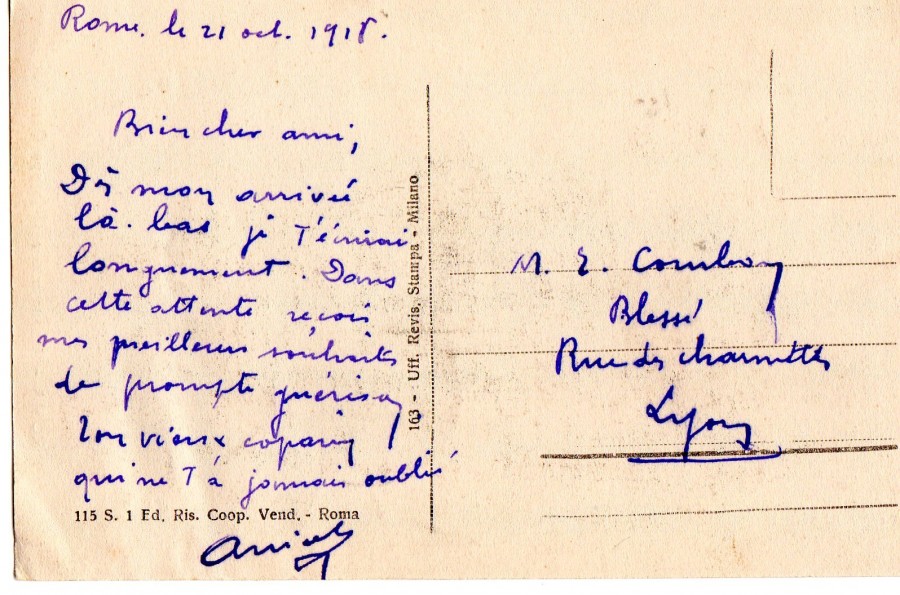 Rome. le 21 oct. 1918.
Bien cher ami,
Dès mon arrivée
là-bas je t'écrirai
longuement. Dans
cette attente reçois
mes meilleurs souhaits
de prompte guérison
Ton vieux copain
qui ne t'a jamais oublié
115 S. 1 Ed. Ris. Coop. Vend. - Roma
163 - Uff. Revis. Stampa - Milano
M. E.
Blessé
Rue des charmettes
Lyon